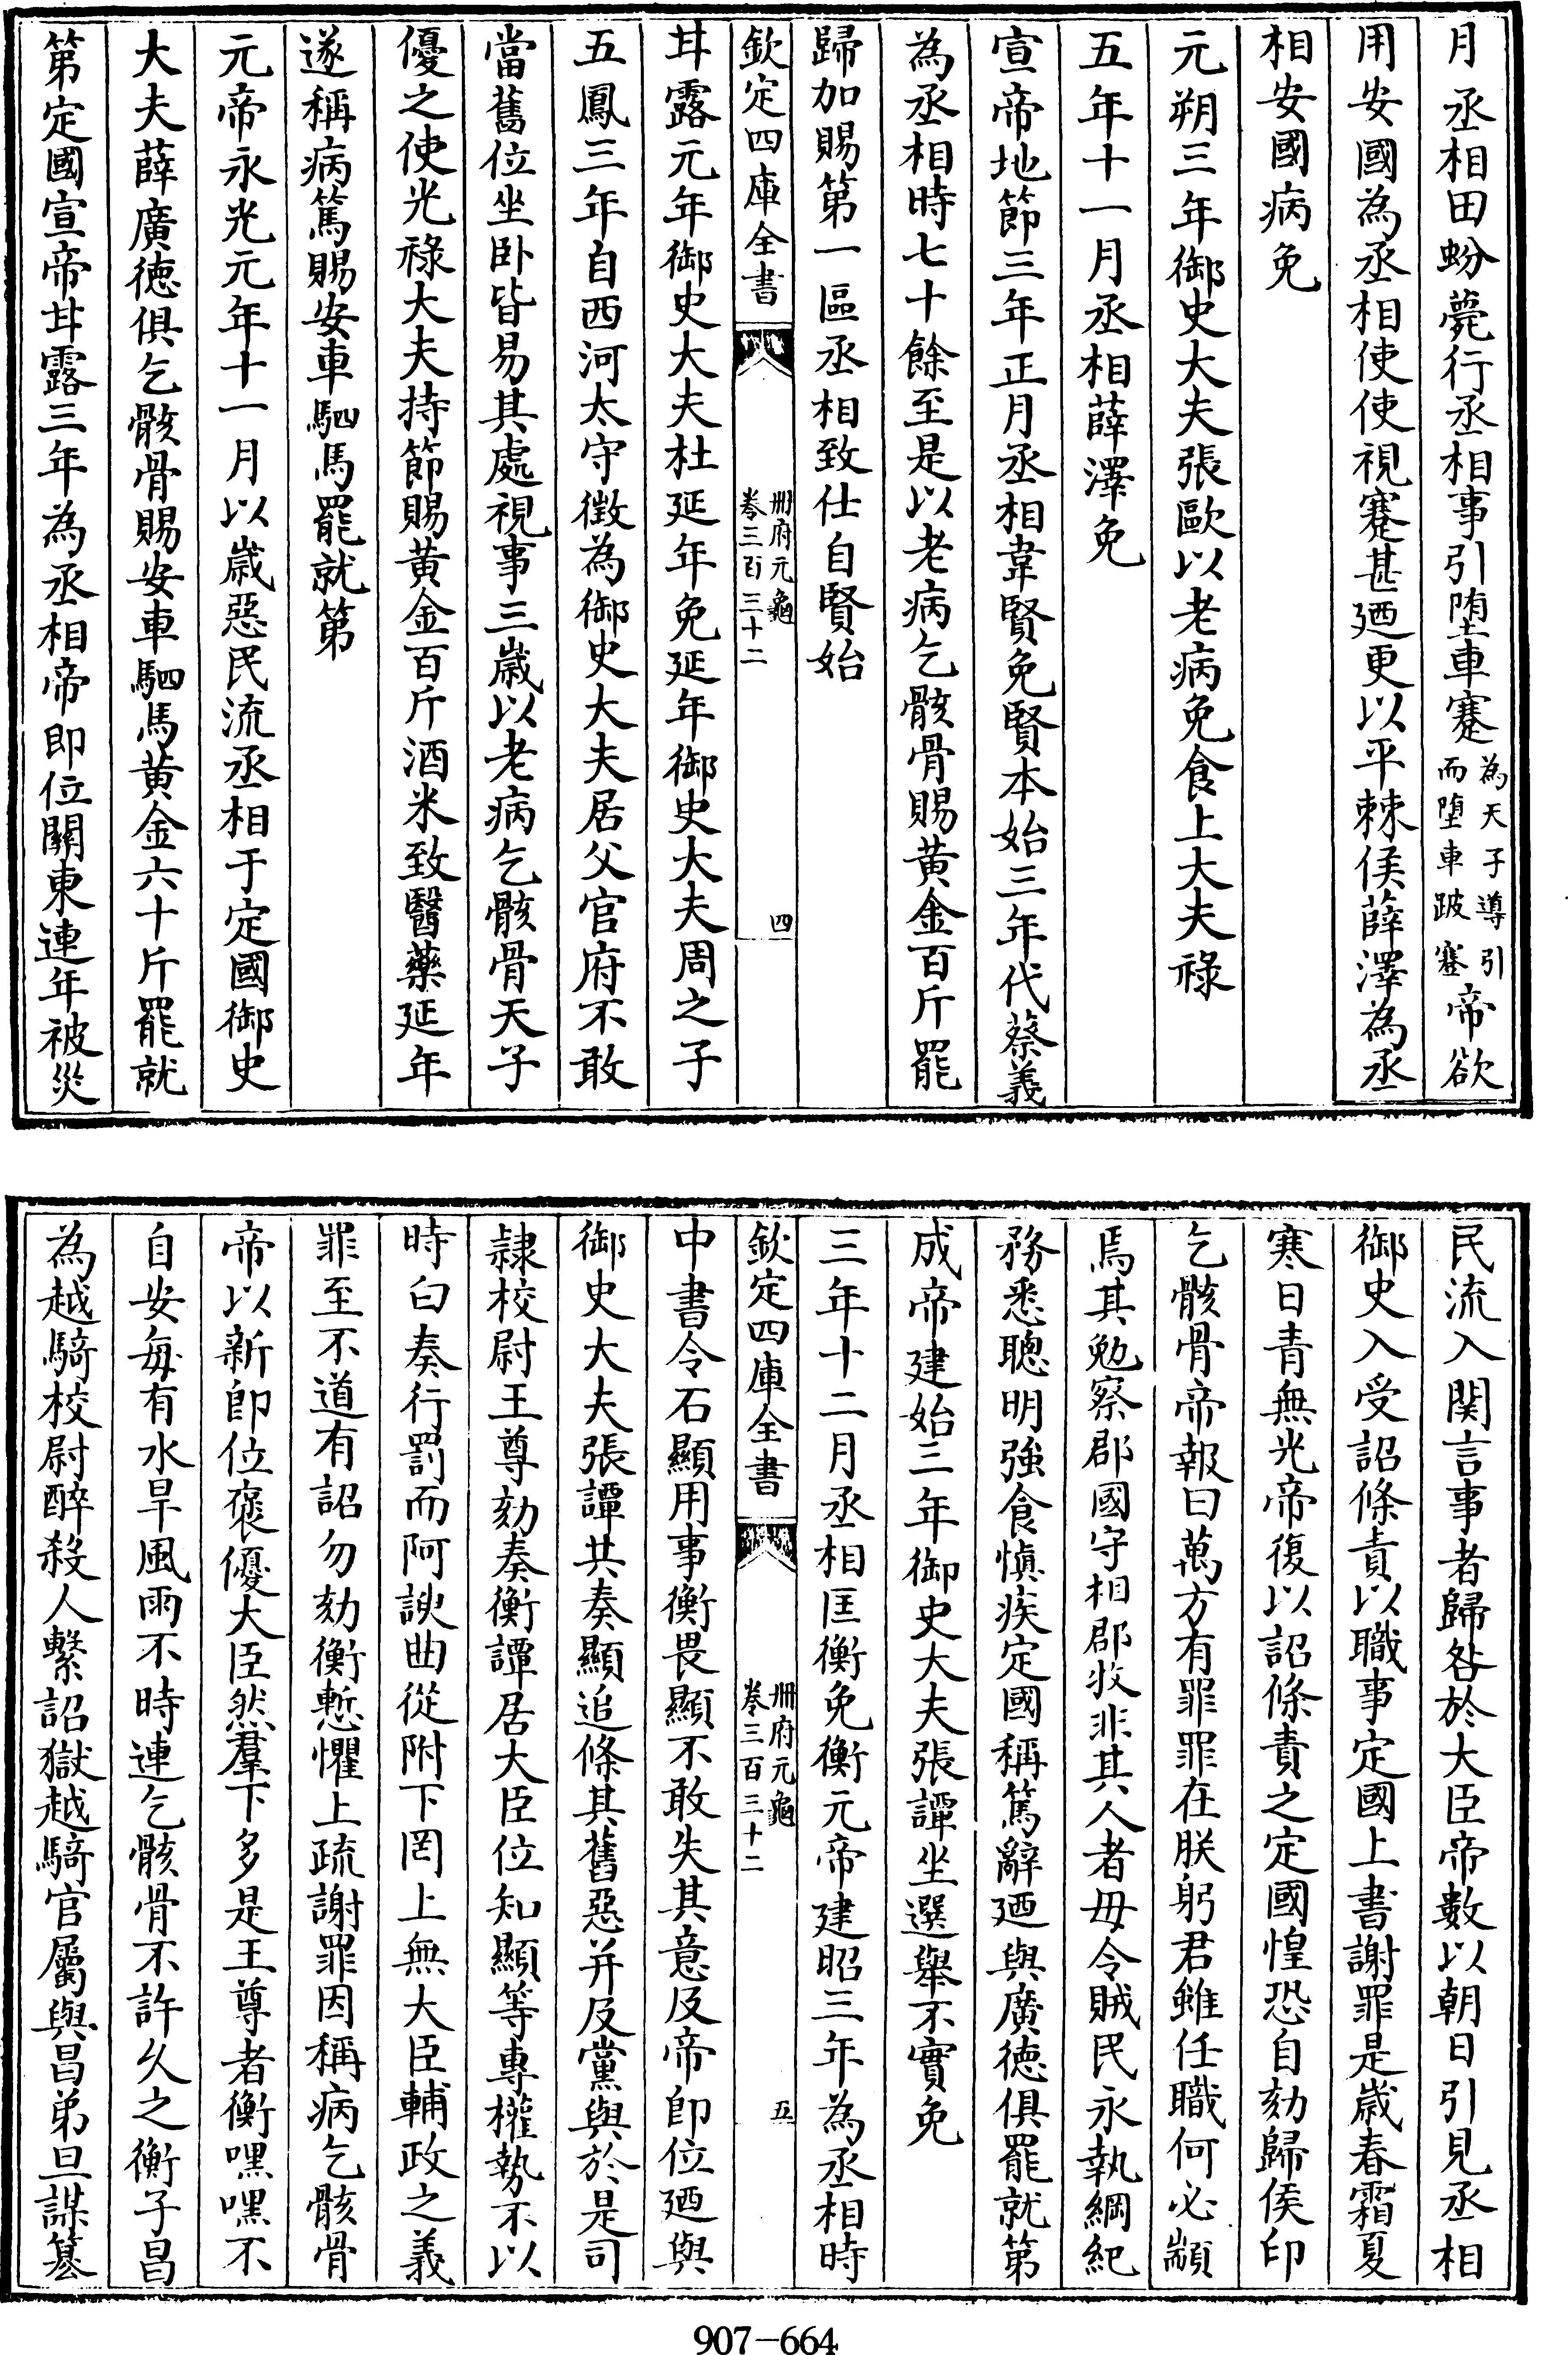 月丞相田蚡薨行丞相事引堕車蹇為天子導引而堕車跛蹇帝欲
用安國為丞相使使視蹇甚廼更以平棘侯薛澤為丞
相安國病免
元朔三年御史大夫張歐以老病免食上大夫祿
五年十一月丞相薛澤免
宣帝地節三年正月丞相韋賢免賢本始三年代蔡義
為丞相時七十餘至是以老病乞骸骨賜黄金百斤罷
歸加賜第一區丞相致仕自賢始
欽定四庫全書
冊府元龜
卷三百三十二
四
甘露元年御史大夫杜延年免延年御史大夫周之子
五鳳三年自西河太守徵為御史大夫居父官府不敢
當舊位坐卧皆易其處視事三歲以老病乞骸骨天子
優之使光祿大夫持節賜黄金百斤酒米致醫藥延年
遂稱病篤賜安車駟馬罷就第
元帝永光元年十一月以歲惡民流丞相于定國御史
大夫薛廣徳俱乞骸骨賜安車駟馬黄金六十斤罷就
第定國宣帝甘露三年為丞相帝即位關東連年被災
民流入関言事者歸咎於大臣帝數以朝日引見丞相
御史入受詔條責以職事定國上書謝罪是歲春霜夏
寒日青無光帝復以詔條責之定國惶恐自劾歸侯印
乞骸骨帝報曰萬方有罪罪在朕躬君雖任職何必顓
焉其勉察郡國守相郡牧非其人者毋令賊民永執綱紀
務悉聰明強食愼疾定國稱篤辭廼與廣徳俱罷就第
成帝建始三年御史大夫張譚坐選舉不實免
三年十二月丞相匡衡免衡元帝建昭三年為丞相時
欽定四庫全書
冊府元龜
卷三百三十二
五
中書令石顯用事衡畏顯不敢失其意及帝即位廼與
御史大夫張譚共奏顯追條其舊惡并及黨與於是司
隷校尉王尊劾奏衡譚居大臣位知顯等專權勢不以
時白奏行罰而阿諛曲從附下罔上無大臣輔政之義
罪至不道有詔勿劾衡慙懼上疏謝罪因稱病乞骸骨
帝以新即位褒優大臣然羣下多是王尊者衡嘿嘿不
自安每有水旱風雨不時連乞骸骨不許久之衡子昌
為越騎校尉醉殺人繫詔獄越騎官屬與昌弟旦謀簒
907-664